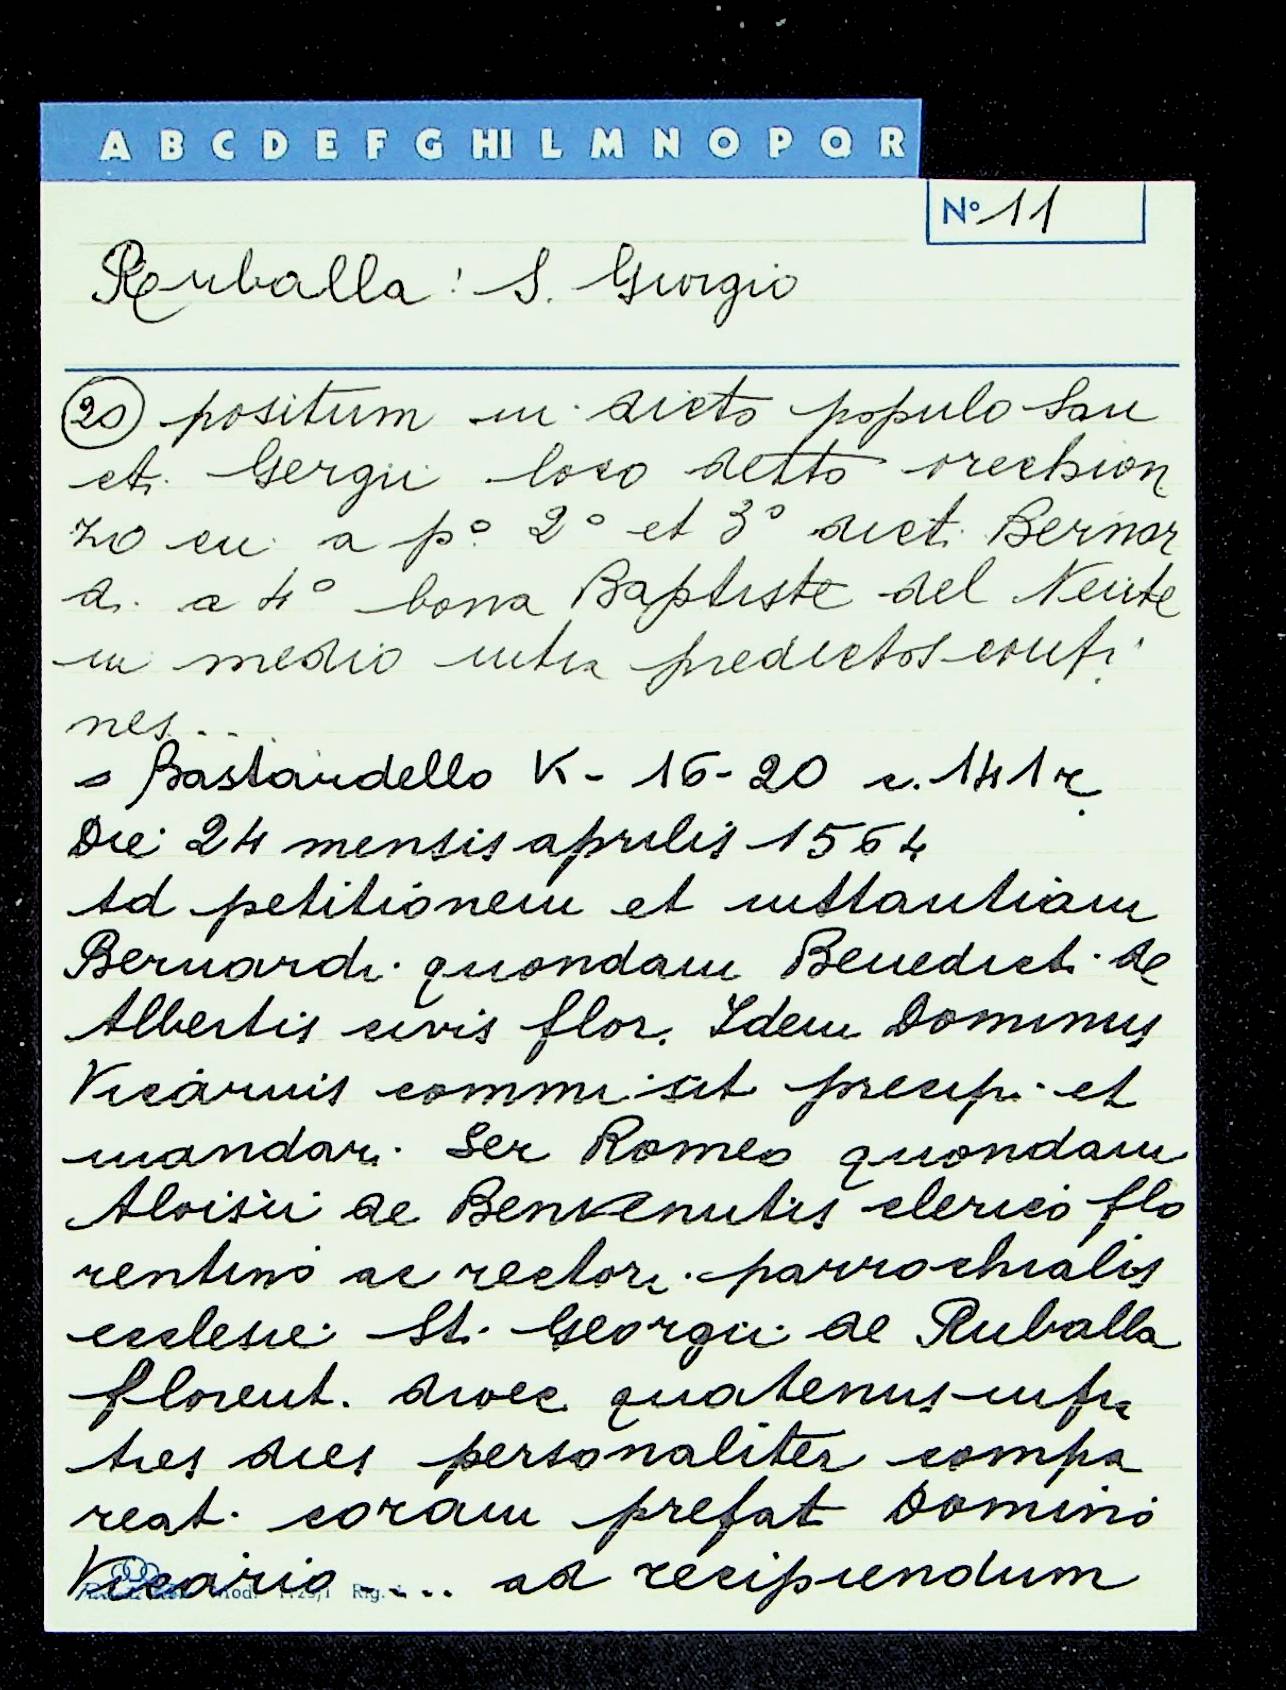 A B C D E F G HI L M N O P Q R
Nº 11
Ruballa: S. Giorgio
20 positum in dicto populo San
cti Gergii loco detto orechion
zo cui a pº 2º et 3º dicti Bernar
di a 4º bona Baptiste del Neute
in medio intra predictos confi
nes...
= Bastardello K - 16-20 c. 141r.
Die 24 mensis aprilis 1564
Ad petitionem et instantiam
Bernardi quondam Benedicti de
Albertis civis flor. Idem Dominus
Vicarius commisit precipi et
mandari Ser Romeo quondam
Aloisii de Benvenutis clerico flo
rentino ac rectori parrochialis
ecclesie Sti Georgii de Ruballa
florent. dioec. quatenus infra
tres dies personaliter compa
reat coram prefat Domino
Vicario .... ad recipiendum
mod. Rig.